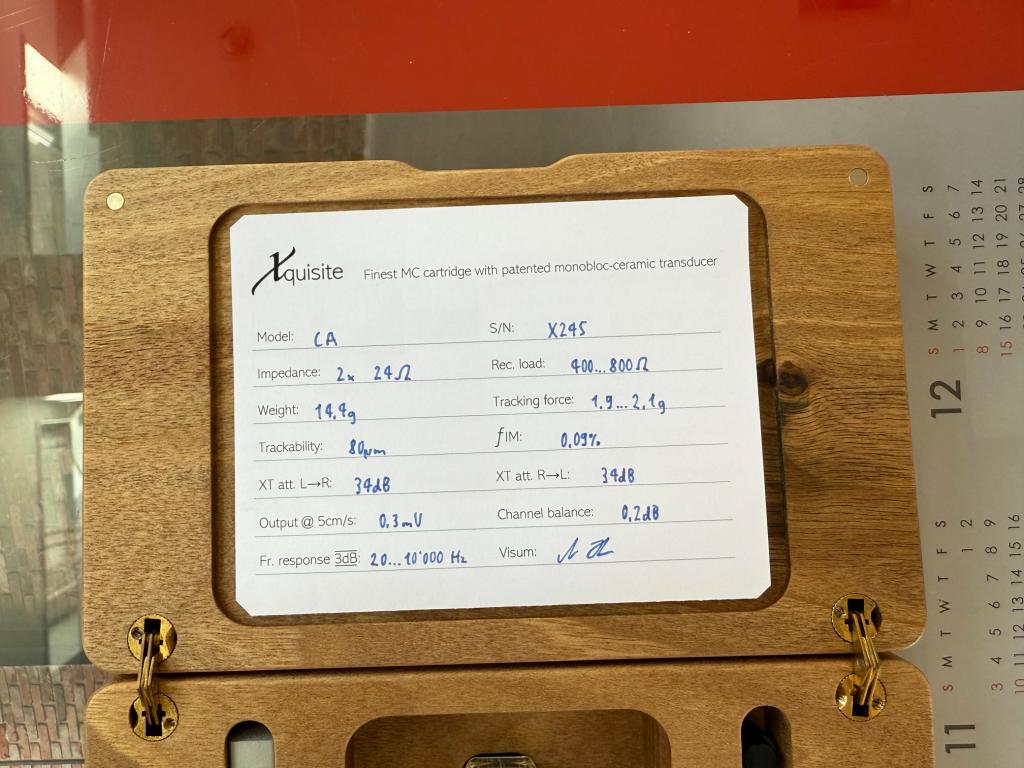 Xquisite Finest MC cartridge with patented monobloc-ceramic transducer
Model: CA S/N: X245
Impedance: 2x 24Ω Rec. load: 400...800Ω
Weight: 14,4g Tracking force: 1.9...2.1g
Trackability: 80µm ƒIM: 0.09%
XT att. L→R: 34dB XT att. R→L: 34dB
Output @ 5cm/s: 0.3mV Channel balance: 0.2dB
Fr. response 3dB: 20...10'000 Hz Visum:
12
S M T W T F S
1 2 3 4 5 6 7
8 9 10 11 12 13 14
15 16 17 18 19 20 21
11
S M T W T F S
1 2
3 4 5 6 7 8 9
10 11 12 13 14 15 16